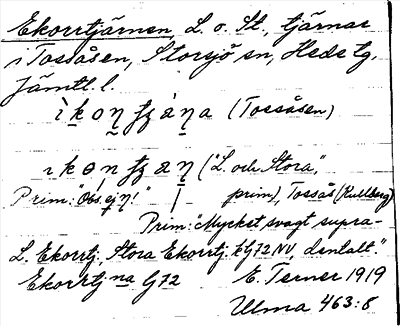 Ekorrtjärnen, L. o. St., tjärnar
i Tossåsen, Storsjö sn, Hede tg.
Jämtl. l.
(Tossåsen)
("L. och Stora",
Prim: "Obs. ej η!" prim), Tossås (Kullberg)
Prim: "Mycket svagt supra-
L. Ekorrtj, Stora Ekorrtj. k G72 NV, dentalt."
Ekorrtj na G72 E. Terner 1919
Ulma 463:8